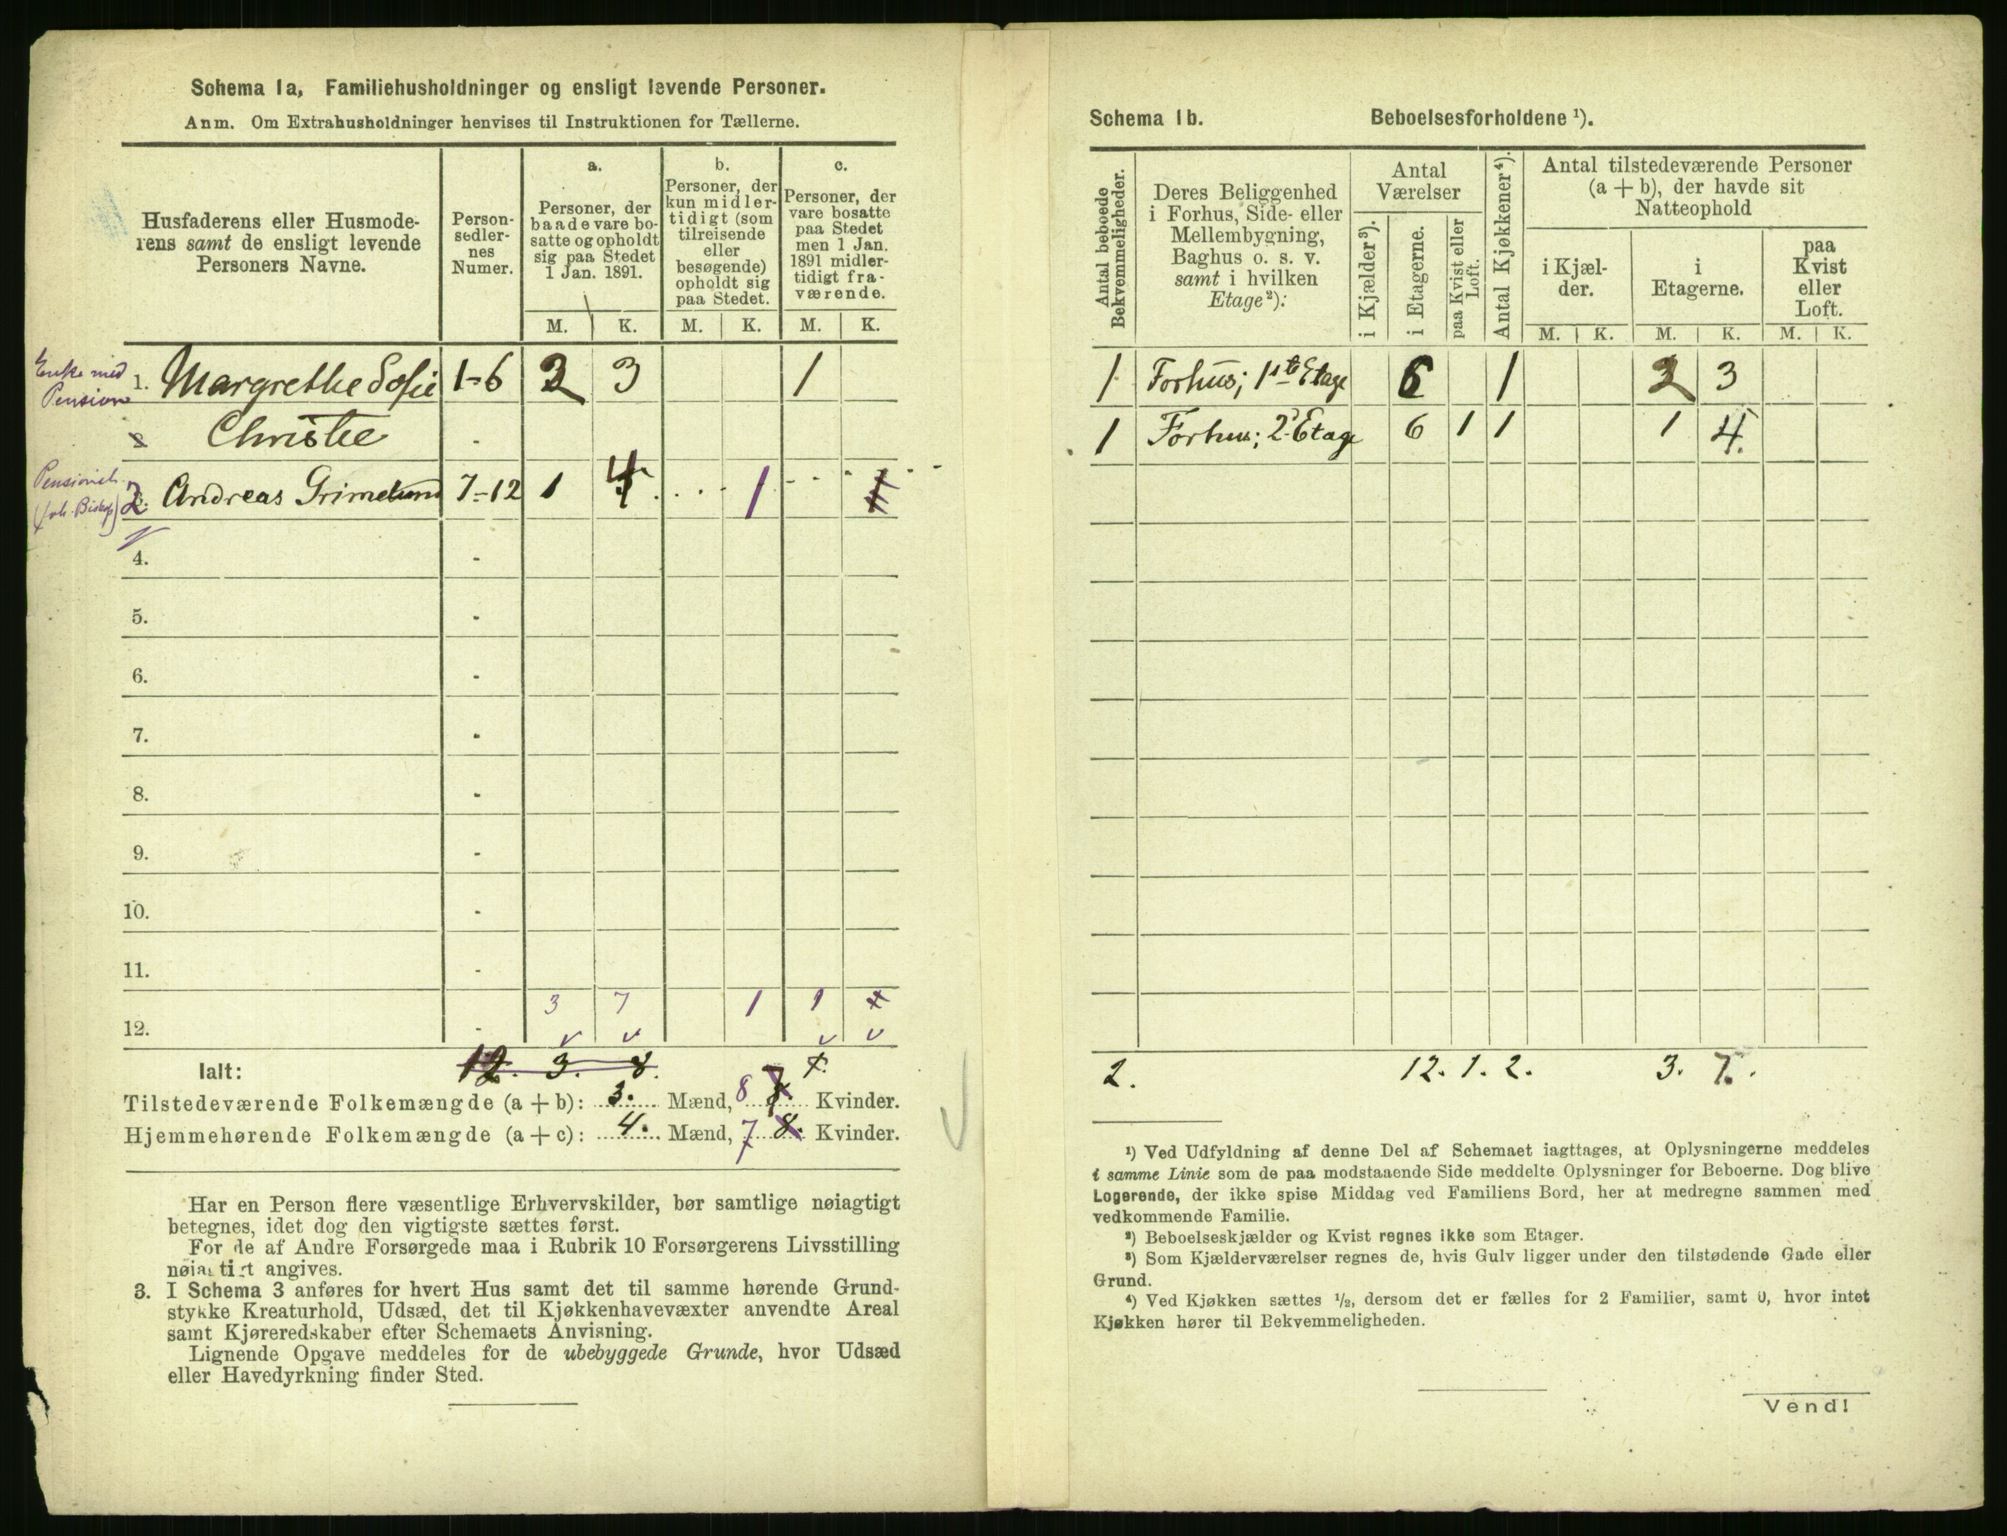 Schema 1a, Familiehusholdninger og ensligt levende Personer.
Anm. Om Extrahusholdninger henvises til Instruktionen for Tællerne.
Husfaderens eller Husmoderens samt de ensligt levende Personers Navne.
Personsedlernes Numer.
a. Personer, der baade vare bosatte og opholdt sig paa Stedet 1 Jan. 1891.
b. Personer, der kun midlertidigt (som tilreisende eller besøgende) opholdt sig paa Stedet.
c. Personer, der vare bosatte paa Stedet men 1 Jan. 1891 midlertidigt fraværende.
M. K. M. K. M. K.
Enke med Pension
1. Margrethe Sofie 1-6 2 3 1
Christie -
Pensionist (fhv. Biskop)
2. Andreas Grimelund 7-12 1 4 1
4. -
5. -
6. -
7. -
8. -
9. -
10. -
11. -
3 7 1 1
12. -
Ialt: 12. 3. 8.
Tilstedeværende Folkemængde (a + b): 3. Mænd, 8 Kvinder.
Hjemmehørende Folkemængde (a + c): 4. Mænd, 7 8. Kvinder.
Har en Person flere væsentlige Erhvervskilder, bør samtlige nøiagtigt
betegnes, idet dog den vigtigste sættes først.
For de af Andre Forsørgede maa i Rubrik 10 Forsørgerens Livsstilling
nøiagtigt angives.
3. I Schema 3 anføres for hvert Hus samt det til samme hørende Grund-
stykke Kreaturhold, Udsæd, det til Kjøkkenhavevæxter anvendte Areal
samt Kjøreredskaber efter Schemaets Anvisning.
Lignende Opgave meddeles for de ubebyggede Grunde, hvor Udsæd
eller Havedyrkning finder Sted.
Schema 1b. Beboelsesforholdene ¹).
Antal beboede Bekvemmeligheder.
Deres Beliggenhed i Forhus, Side- eller Mellembygning, Baghus o. s. v. samt i hvilken Etage ²):
Antal Værelser
i Kjælder ³).
i Etagerne.
paa Kvist eller Loft.
Antal Kjøkkener ⁴).
Antal tilstedeværende Personer (a + b), der havde sit Natteophold
i Kjælder.
i Etagerne.
paa Kvist eller Loft.
M. K. M. K. M. K.
1 Forhus; 1ste Etage 6 1 2 3
1 Forhus; 2. Etage 6 1 1 1 4.
2. 12. 1. 2. 3. 7.
¹) Ved Udfyldning af denne Del af Schemaet iagttages, at Oplysningerne meddeles
i samme Linie som de paa modstaaende Side meddelte Oplysninger for Beboerne. Dog blive
Logerende, der ikke spise Middag ved Familiens Bord, her at medregne sammen med
vedkommende Familie.
²) Beboelseskjælder og Kvist regnes ikke som Etager.
³) Som Kjælderværelser regnes de, hvis Gulv ligger under den tilstødende Gade eller
Grund.
⁴) Ved Kjøkken sættes ½, dersom det er fælles for 2 Familier, samt 0, hvor intet
Kjøkken hører til Bekvemmeligheden.
Vend!